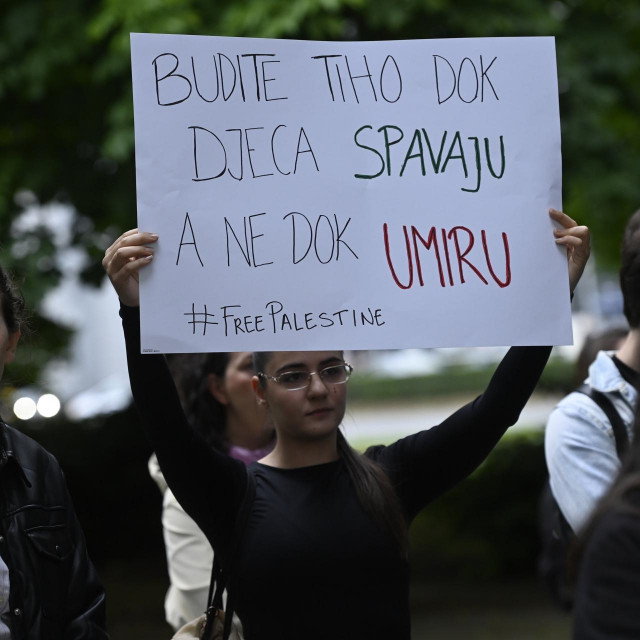 BUDITE TIHO DOK
DJECA SPAVAJU
A NE DOK UMIRU
#FREEPALESTINE